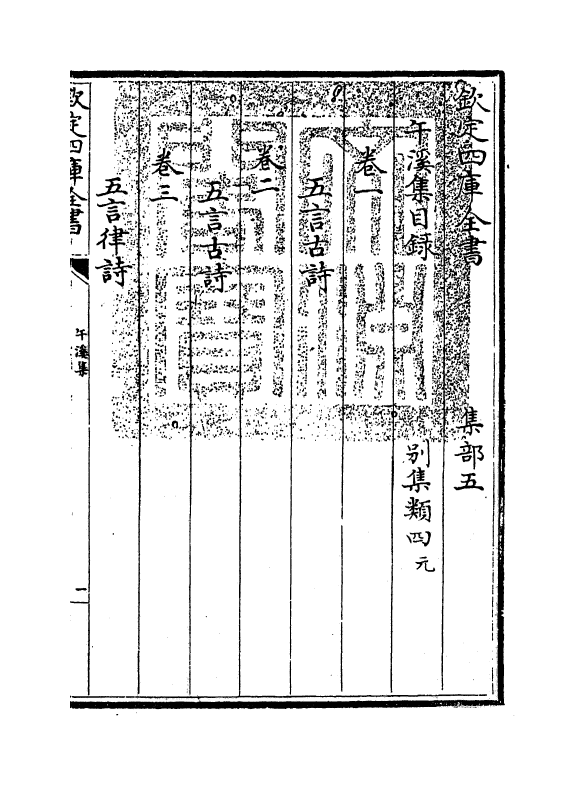 欽定四庫全書 集部五
午溪集目録 别集類四元
卷一
五言古詩
卷二
五言古詩
卷三
五言律詩
欽定四庫全書
午溪集
一